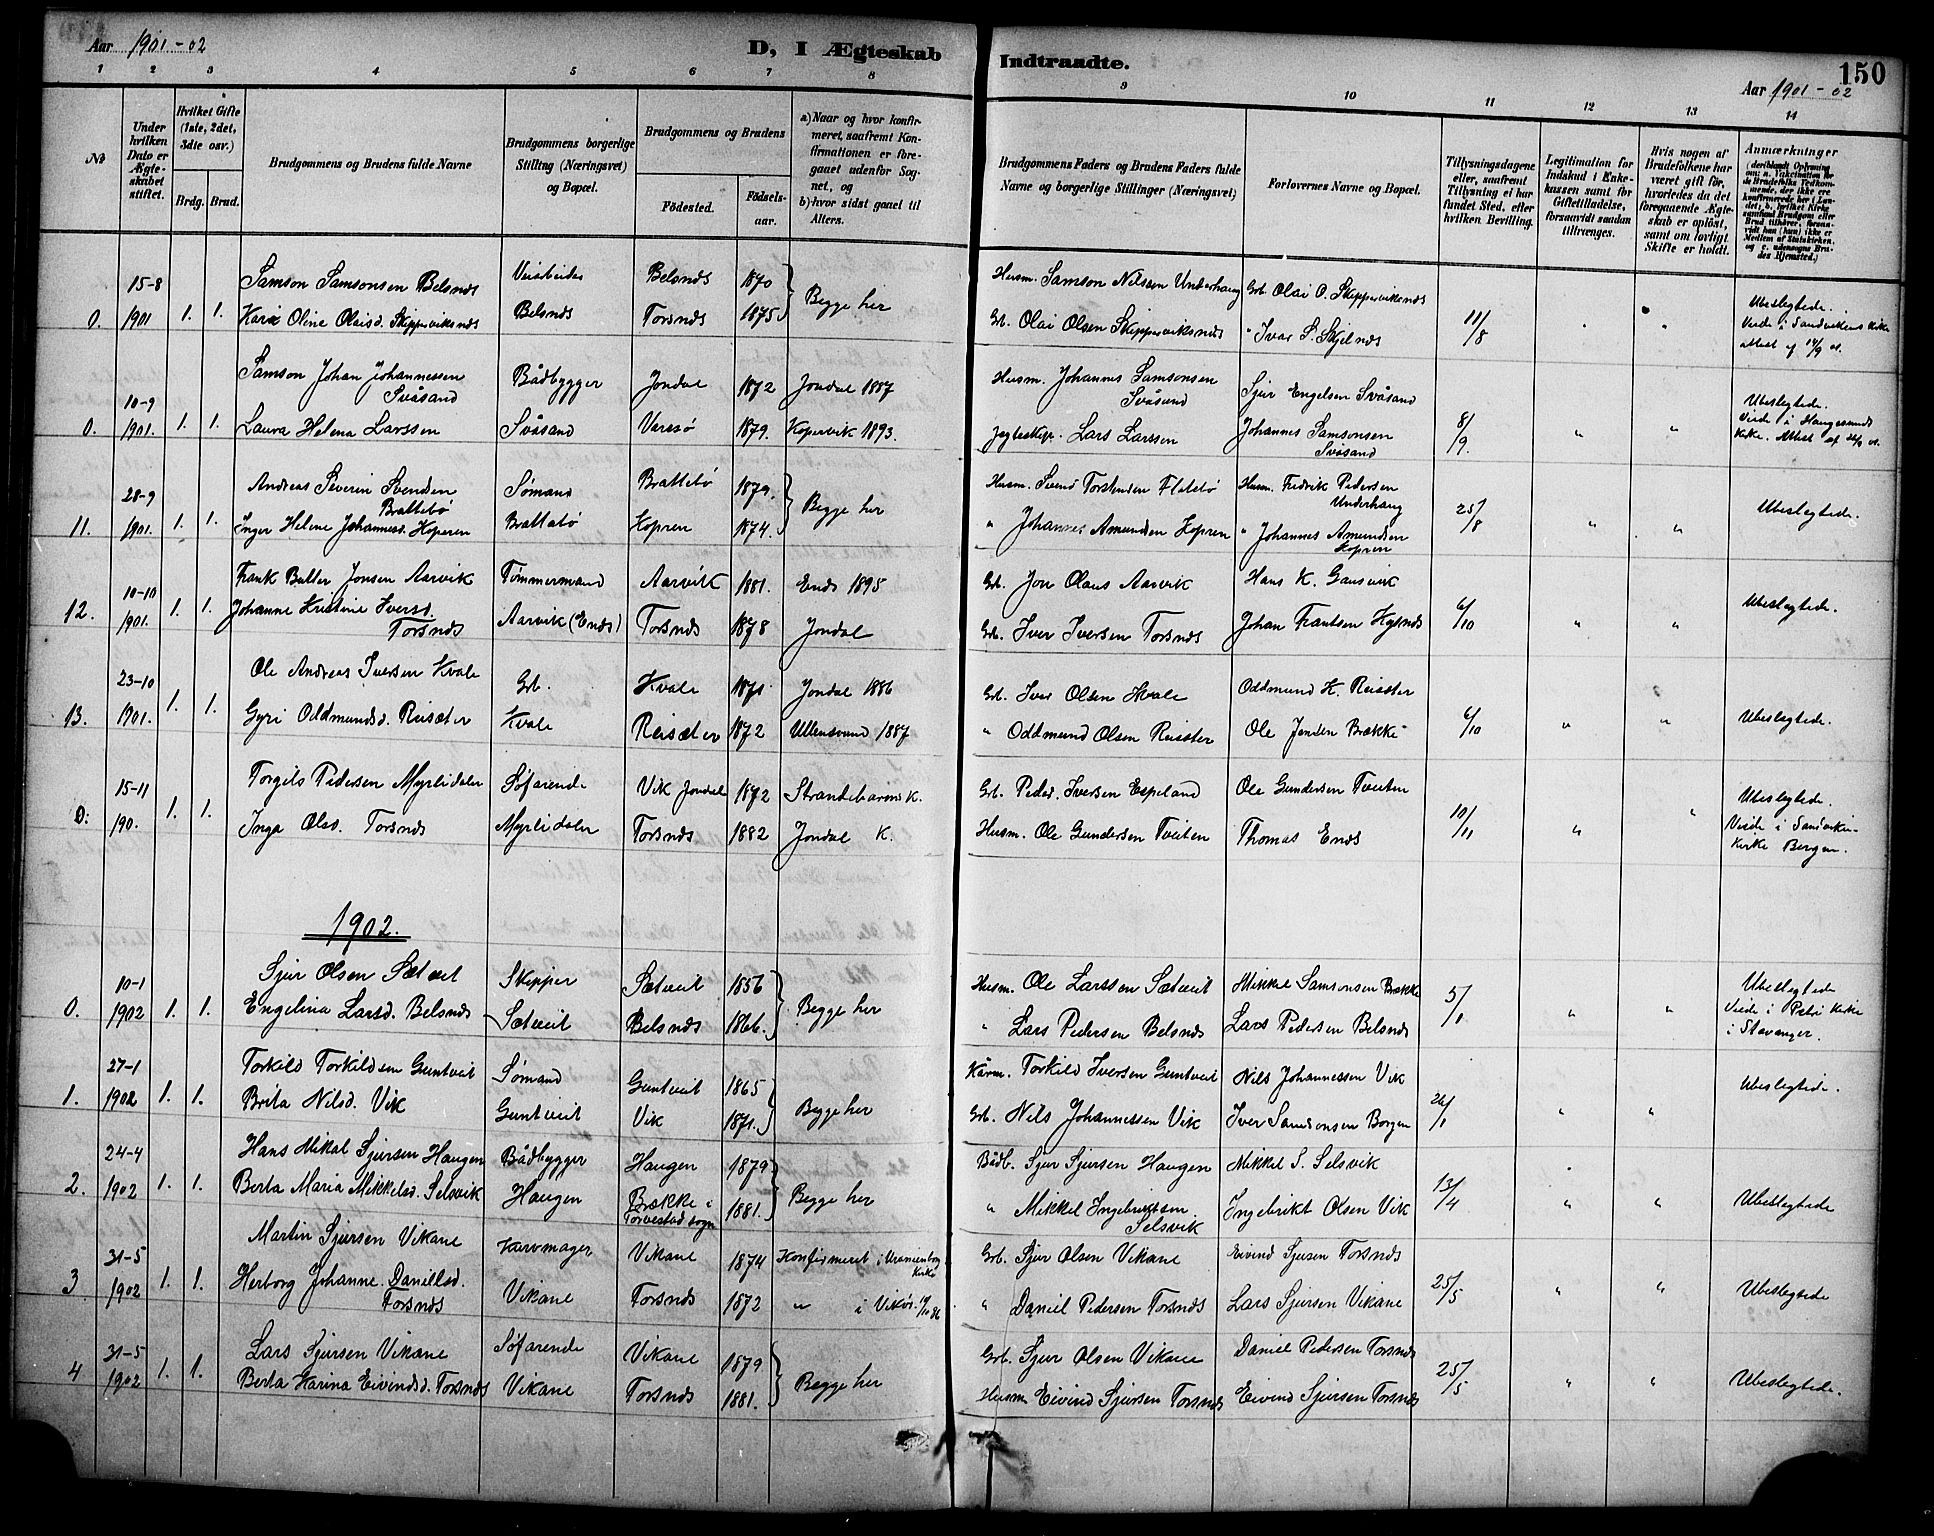 Aar 1901-02
D, I Ægteskab
Indtraadte.
Aar 1901-02
150
1 2 3 4 5 6 7 8
9 10 11 12 13 14
No
Under hvilken Dato er Ægteskabet stiftet.
Hvilket Gifte (1ste, 2det, 3die osv.)
Brdg. Brud.
Brudgommens og Brudens fulde Navne
Brudgommens borgerlige Stilling (Næringsvei) og Bopœl.
Brudgommens og Brudens
Födested.
Födselsaar.
a) Naar og hvor konfirmeret, saafremt Konfirmationen er foregaaet udenfor Sognet, og
b) hvor sidst gaaet til Alters.
Brudgommens Faders og Brudens Faders fulde Navne og borgerlige Stillinger (Næringsvei)
Forlovernes Navne og Bopœl.
Tillysningsdagene eller, saafremt Tillysning ei har fundet Sted, efter hvilken Bevilling.
Legitimation for Indskud i Enkekassen samt for Giftetilladelse, forsaavidt saadan tiltrænges.
Hvis nogen af Brudefolkene har været gift för, hvorledes da det foregaaende Ægteskab er oplöst, samt om lovligt Skifte er holdt.
Anmærkninger
0. 15-8 1901 1. 1. Samson Samsonsen Belsnes Veiarbeider Belsnes 1870 Begge her Husm. Samson Nilssen Underhaug Grb. Olai O. Skipperviksnes
Kari Oline Olaisd. Skipperviksnes Belsnes Torsnes 1875 Grb. Olai Olsen Skipperviksnes " Ivar S. Skjelnes 11/8 " " Ubeslegtede.
Viede i Sandvikens Kirke
Attest af 14/9 01.
0. 10-9 1901. 1. 1. Samson Johan Johannessen Svåsand Bådbygger Jondal 1872 Jondal 1887 Husm. Johannes Samsonsen Svåsand Sjur Engelsen Svåsand
Laura Helena Larssen Svåsand Varesø 1879. Kopervik 1893. Jægteskpr. Lars Larssen Johannes Samsonsen Svåsand 8/9. " " Ubeslegtede.
Viede i Haugesunds
Kirke. Attest af 01.
11. 28-9 1901. 1. 1. Andreas Severin Svendsen Brattebø Sømand Brattebø 1879. Begge her Husm. Svend Torstensen Flatebø Husm. Fredrik Pedersen Underhaug
Inger Helene Johannesd. Koperen Brattebø Kopren 1874. " Johannes Amundsen Kopren " Johannes Amundsen Kopren 25/8 " " Ubeslegtede.
12. 10-10 1901. 1. 1. Frank Butler Jonsen Aarvik Tømmermand Aarvik 1881. Enes 1895 Grb. Jon Olaus Aarvik Hans K. Gausvik
Johanne Kristine Iversd. Torsnes Aarvik (Enes) Torsnes 1878 Jondal Grb. Iver Iversen Torsnes Johan Frantsen 6/10 " " Ubeslegtede.
13. 23-10 1901. 1. 1. Ole Andreas Iversen Kvale Grb. Kvale 1871. Jondal 1886 Grb. Iver Olsen Kvale Oddmund K. Reisæter
Gyri Oddmundsd. Reisæter Kvale Reisæter 1872 Ullensvund 1887 " Oddmund Olsen Reisæter Ole Jensen Brække 6/10 " " Ubeslegtede.
0. 15-11 190. 1. 1. Torgils Pedersen Myrleidalen Søfarende Vik Jondal 1872 Strandebarms K. Grb. Peder Iversen Espeland Ole Gundersen Tveiten
Inga Olsd. Torsnes Myrleidalen Torsnes 1882 Jondal K. Husm. Ole Gundersen Tveiten Thomas Enes 10/11 " " Ubeslegtede.
Viede i Sandviken-
Kirke Bergen.
1902.
0. 10-1 1902 1. 1. Sjur Olsen Sætveit Skipper Sætveit 1856 Begge her Husm. Ole Larssen Sætveit Mikkel Samsonsen Brække
Engelina Larsd. Belsnes Sætveit Belsnes 1866. " Lars Pedersen Belsnes Lars Pedersen Belsnes 5/1 " " Ubeslegtede
Viede i Petri Kirke
i Stavanger.
1. 27-1 1902 1. 1. Torkild Torkildsen Guntveit Sømand Guntveit 1865 Begge her Kårm. Torkild Iversen Guntveit Nils Johannessen Vik
Brita Nilsd. Vik Guntveit Vik 1871. Grb. Nils Johannessen Vik Iver Samsonsen Borgen 26/1 " " Ubeslegtede.
2. 24-4 1902 1. 1. Hans Mikal Sjursen Haugen Bådbygger Haugen 1879 Begge her Bådb. Sjur Sjursen Haugen Mikkel S. Selsvik
Berta Maria Mikkelsd. Selsvik Haugen Brække i Torvestad sogn 1881. " Mikkel Ingebriktsen Selsvik Ingebrikt Olsen Vik 13/4 " " Ubeslegtede
3 31-5 1902 1. 1. Martin Sjursen Vikane Kurvmager Vikane 1874 Konfirmeret i Uranienborg Kirke Grb. Sjur Olsen Vikane Eivind Sjursen Torsnes
Herborg Johanne Danielsd. Torsnes Vikane Torsnes 1872 " i Vikør Daniel Pedersen Torsnes Lars Sjursen Vikane 25/5 " " Ubeslegtede
4 31-5 1902 1. 1. Lars Sjursen Vikane Søfarende Vikane 1879 Begge her Grb. Sjur Olsen Vikane Daniel Pedersen Torsnes
Berta Karina Eivindsd. Torsnes Vikane Torsnes 1881. Husm Eivind Sjursen Torsnes Eivind Sjursen Torsnes 25/5 " " Ubeslegtede.